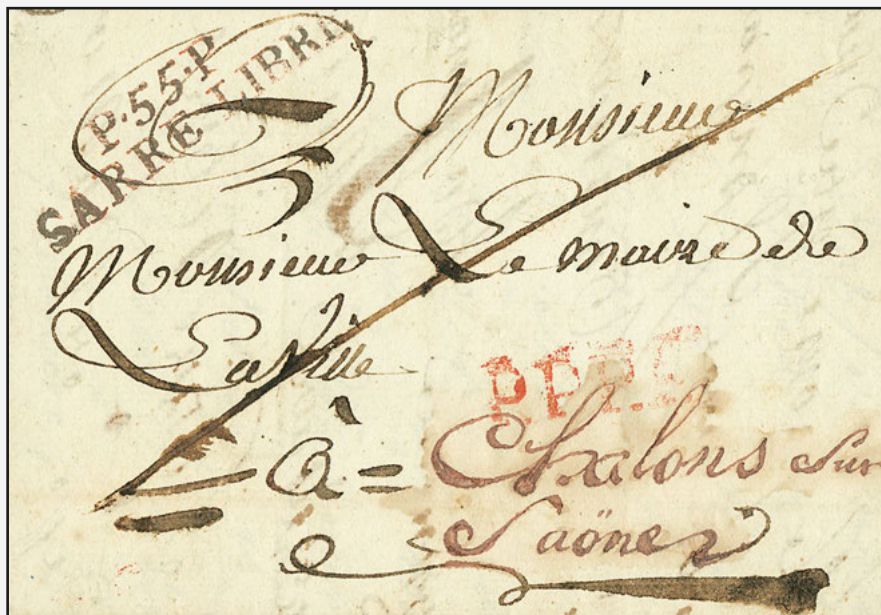 P.55.P
SARRE LIBRE
Monsieur
Monsieur Le maire de
La Ville
P.P.P.P.
= à = Chalons Sur
Saône